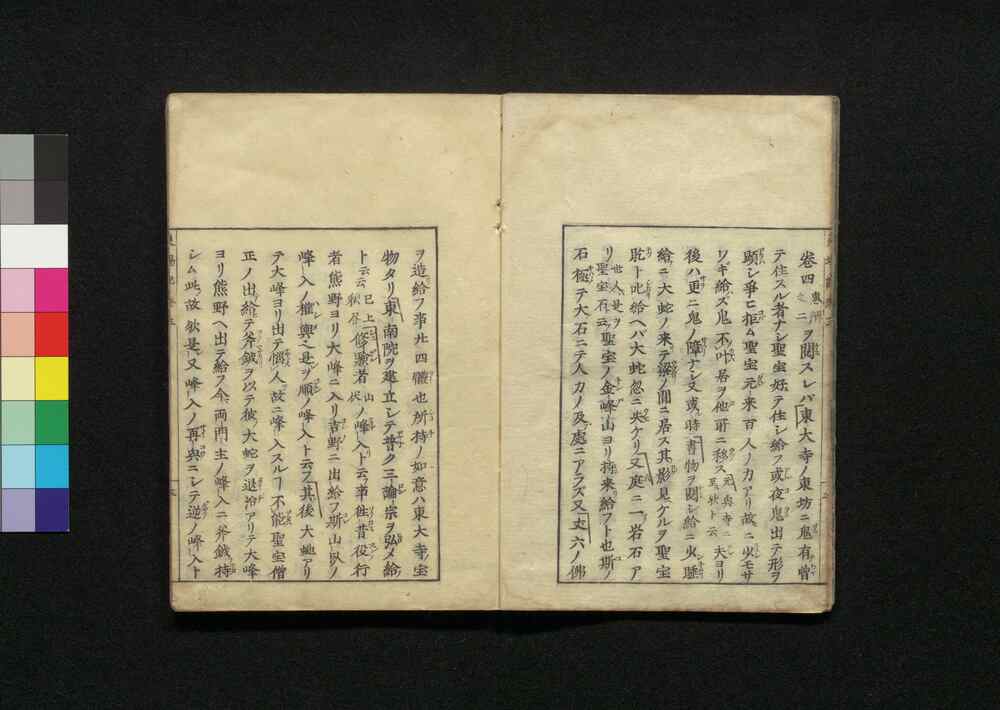 巻四 ヲ閲スレバ東大寺ノ東坊ニ鬼有曽
テ住スル者ナシ聖宝好テ住シ給フ或夜鬼出テ形ヲ
顕シ争ヒ拒ム聖宝元来百人ノ力アリ故ニ少モサ
ワギ給ズ鬼不叶居ヲ他所ニ移ス元興寺ニ至ルト云夫ヨリ
後ハ更ニ鬼ノ障ナシ又或時書物ヲ閲シ給ニ少睡
給ニ大蛇ノ来テ梁ノ間ニ居ス其影見ケルヲ聖宝
𠮟ト𠮟給ヘバ大蛇忽ニ失ケリ又庭ニ一岩石ア
リ世人是ヲ聖宝石云聖宝ノ金峰山ヨリ持来給フト也斯ノ
石極テ大石ニテ人力ノ及処ニアラズ又丈六ノ佛
ヲ造給フ事廿四体也所持ノ如意ハ東大寺宝
物タリ東南院ヲ建立シテ普ク三論宗ヲ弘メ給
ト云云巳上修験者山伏ノ峰入ト云事往昔役行
者熊野ヨリ大峰ニ入リ吉野ニ出給フ斯山臥ノ
峰入ノ権輿也是ヲ順ノ峰入ト云フ其後大蛇アリ
テ大峰ヨリ出テ悩人故ニ峰入スルヿ不能聖宝僧
正ノ出給テ斧鉞ヲ以テ彼大蛇ヲ退治アリテ大峰
ヨリ熊野ヘ出テ給フ今両門主ノ峰入ニ斧鉞持
シム此故欤是又峰入ノ再興ニシテ逆ノ峰入ト